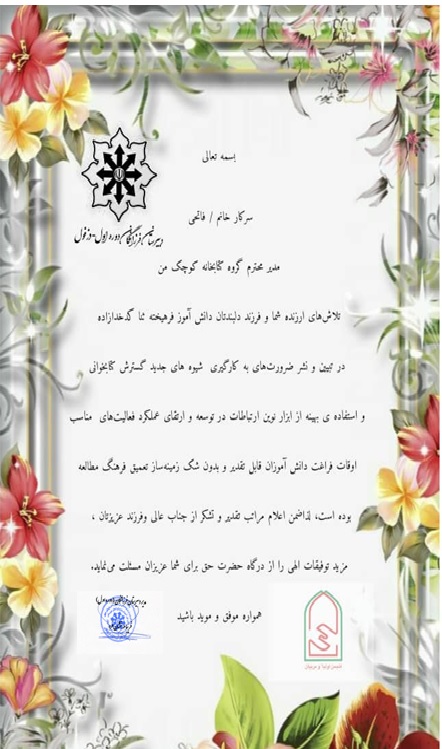 بسمه تعالی
سرکار خانم / فاتحی
دبیرستان فرزانگان دوره اول - دزفول
مدیر محترم گروه کتابخانه کوچک من
تلاش‌های ارزنده شما و فرزند دلبندتان دانش آموز فرهیخته ثنا کدخدازاده
در تبیین و نشر ضرورت‌های به کارگیری شیوه های جدید گسترش کتابخوانی
و استفاده ی بهینه از ابزار نوین ارتباطات در توسعه و ارتقای عملکرد فعالیت‌های مناسب
اوقات فراغت دانش آموزان قابل تقدیر و بدون شک زمینه‌ساز تعمیق فرهنگ مطالعه
بوده است، لذاضمن اعلام مراتب تقدیر و تشکر از جناب عالی وفرزند عزیزتان ،
مزید توفیقات الهی را از درگاه حضرت حق برای شما عزیزان مسئلت می‌نماید.
همواره موفق و موید باشید
انجمن اولیا و مربیان